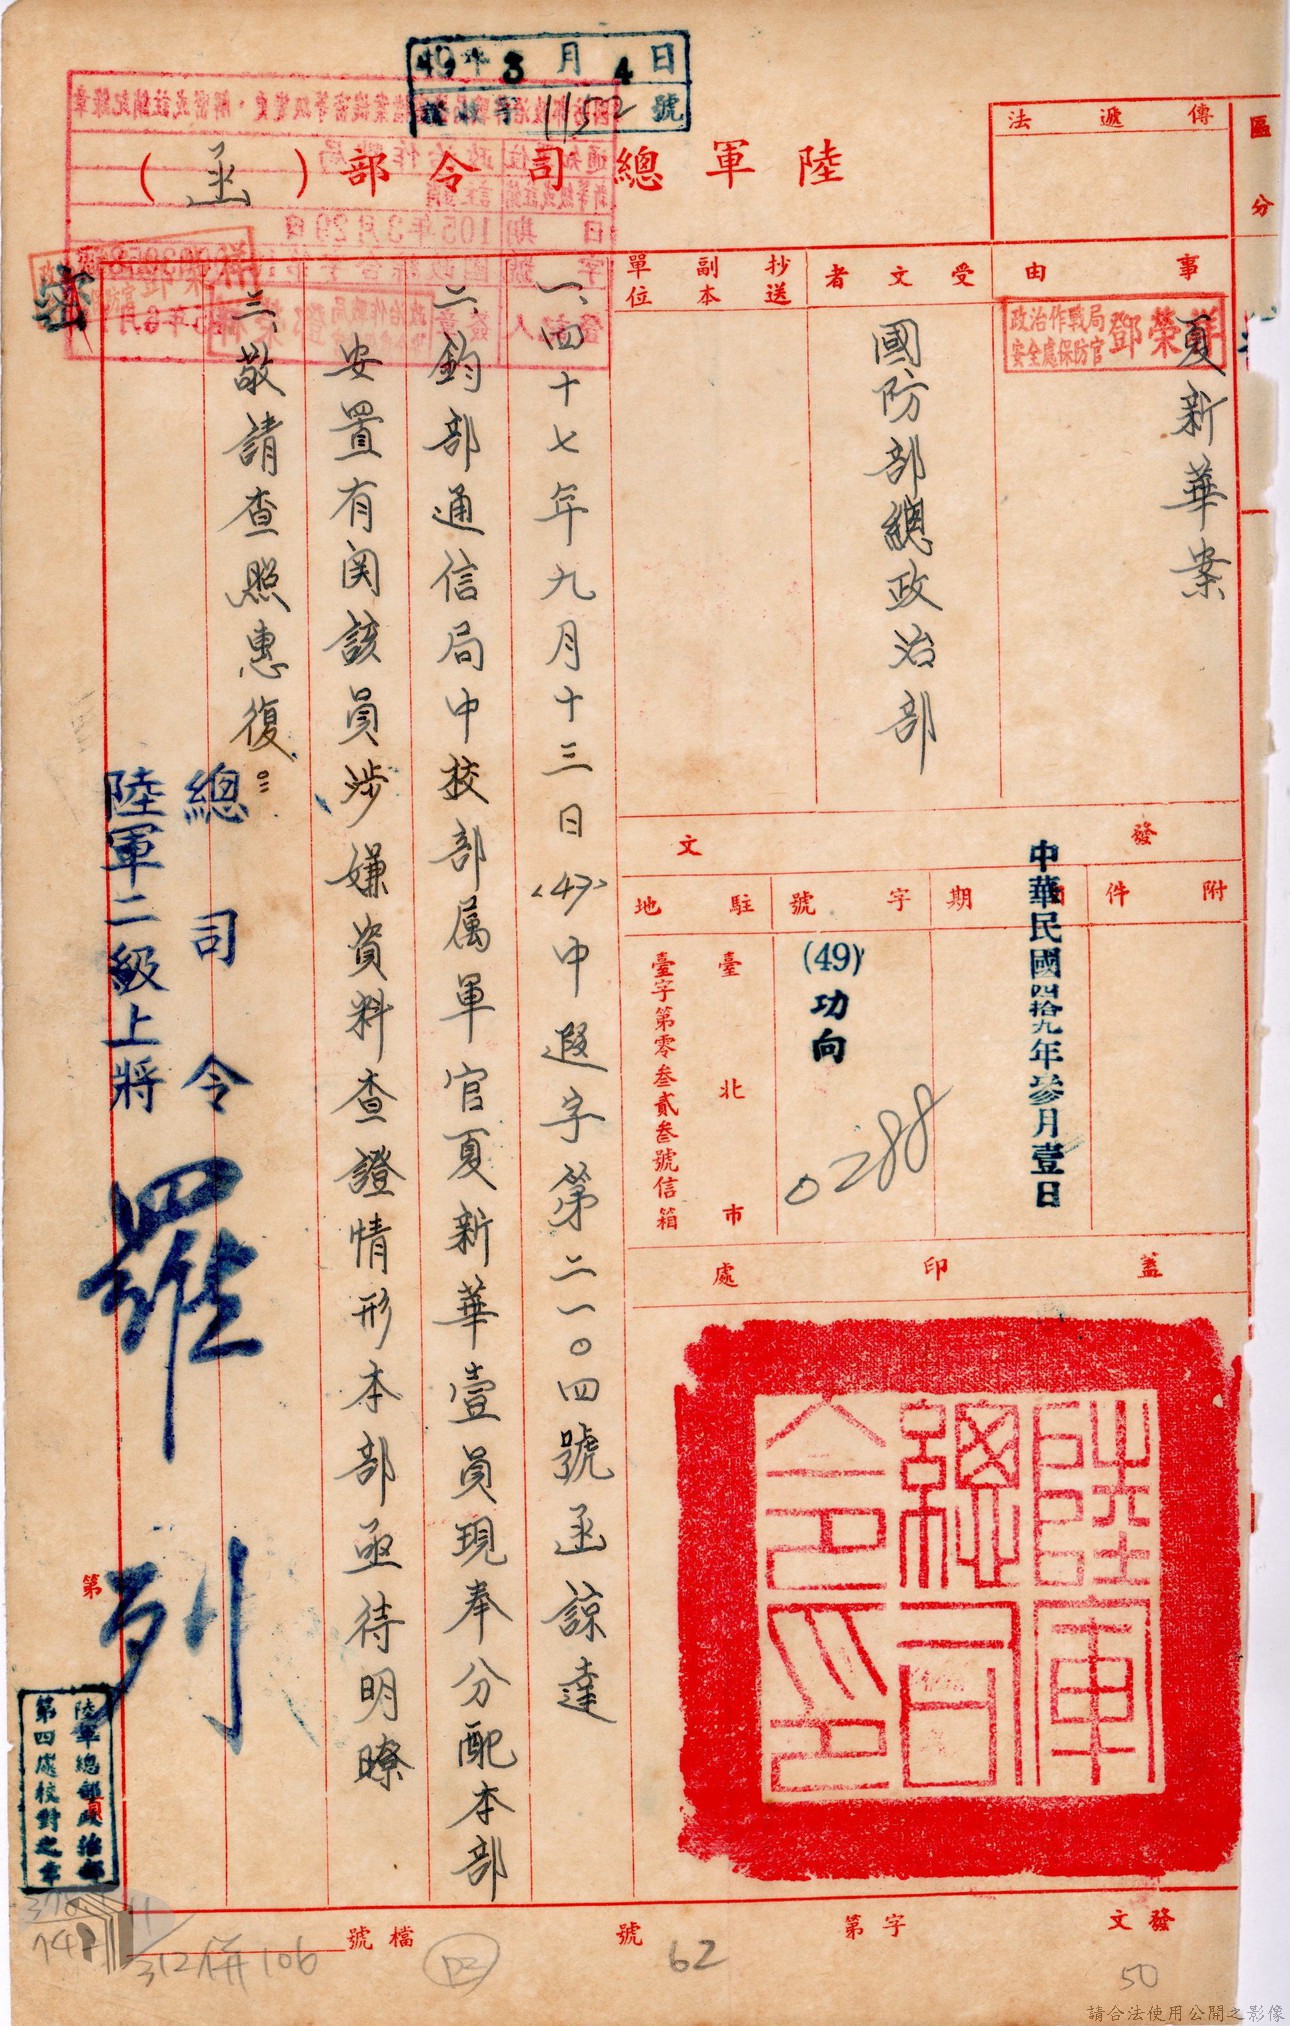 49年3月4日
收字1152號
陸軍總司令部（函）
傳遞法
區分
密
事由
夏新華案
政治作戰局
安全處保防官
鄧榮祥
受文者
國防部總政治部
抄送副本單位
發文
附件
日期
中華民國四拾九年叁月壹日
字號
(49)
功向
0288
駐地
臺北市
臺字第零叁貳叁號信箱
蓋印處
陸軍總司令印
一、四十七年九月十三日(47)中遐字第二一〇四號函諒達
二、鈞部通信局中校部属軍官夏新華壹員現奉分配本部
安置有関該員涉嫌資料查證情形本部亟待明瞭
三、敬請查照惠復。
總司令
陸軍二級上將
羅列
第
陸軍總部政治部
第四處校對之章
發文
字第
號
檔號
62
50
312併106
請合法使用公開之影像